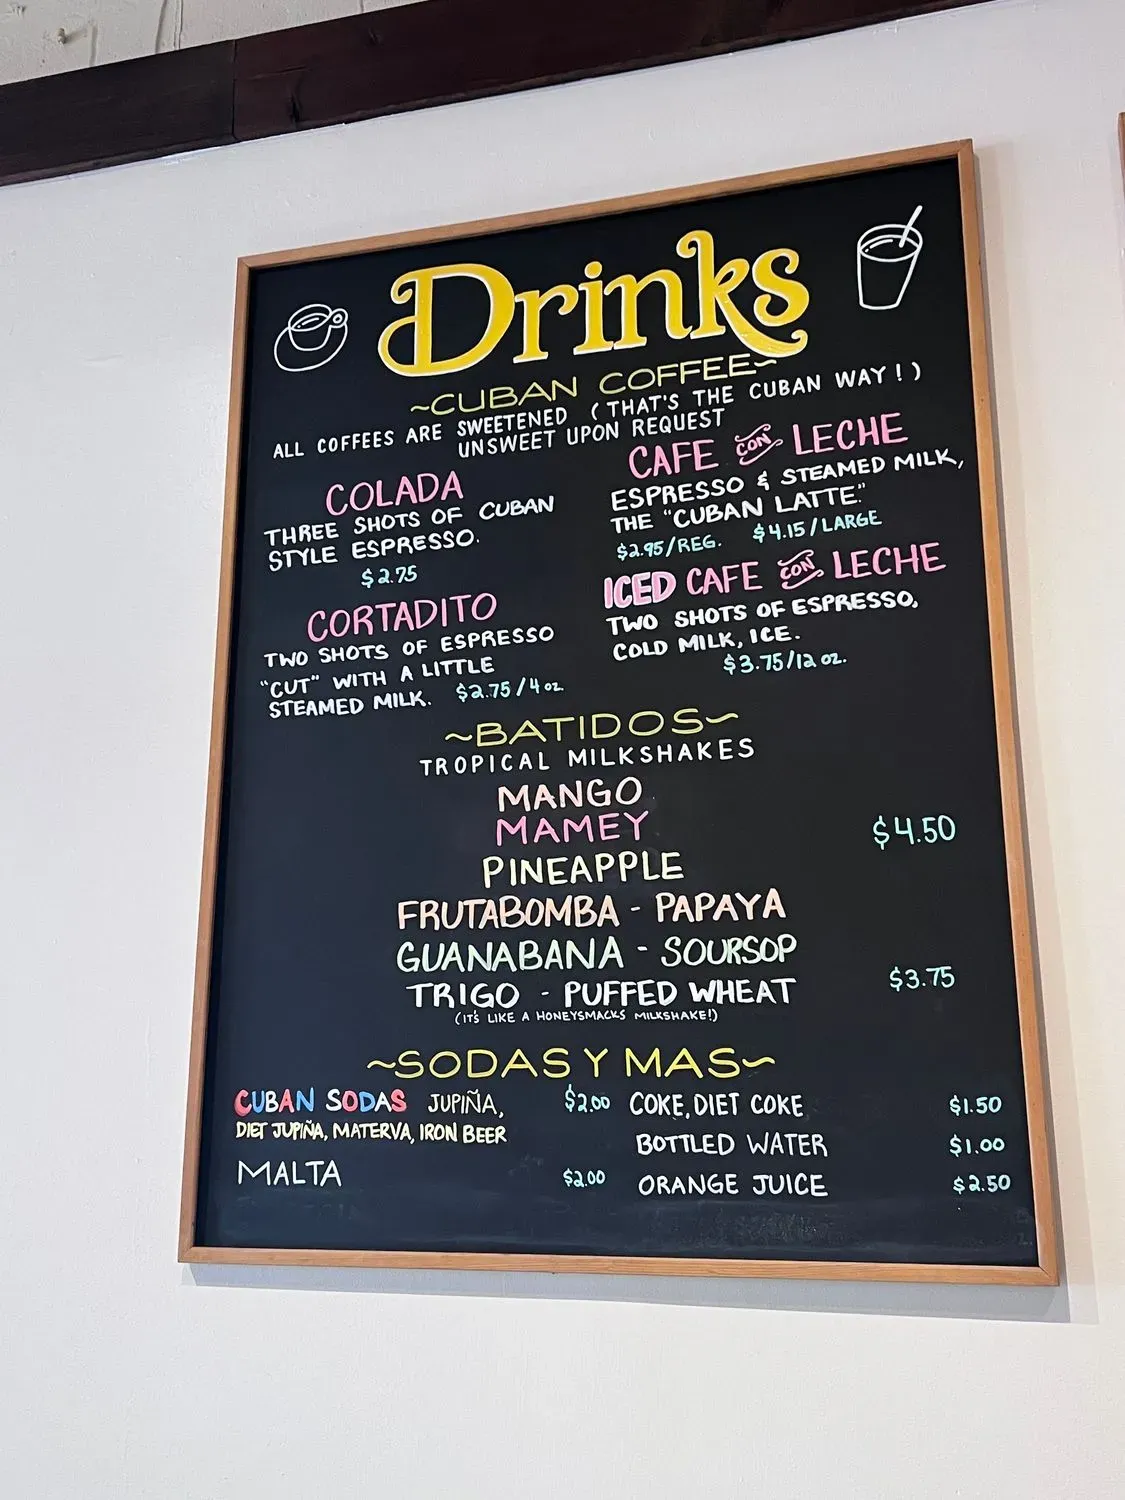 Drinks
~CUBAN COFFEE~
ALL COFFEES ARE SWEETENED (THAT'S THE CUBAN WAY!)
UNSWEET UPON REQUEST
COLADA
THREE SHOTS OF CUBAN
STYLE ESPRESSO.
$2.75
CORTADITO
TWO SHOTS OF ESPRESSO
"CUT" WITH A LITTLE
STEAMED MILK. $2.75/4 oz
CAFE CON LECHE
ESPRESSO & STEAMED MILK,
THE "CUBAN LATTE."
$2.95/REG. $4.15/LARGE
ICED CAFE CON LECHE
TWO SHOTS OF ESPRESSO,
COLD MILK, ICE.
$3.75/12 OZ.
~BATIDOS~
TROPICAL MILKSHAKES
MANGO
MAMEY $4.50
PINEAPPLE
FRUTABOMBA - PAPAYA
GUANABANA - SOURSOP
TRIGO - PUFFED WHEAT $3.75
(IT'S LIKE A HONEYSMACKS MILKSHAKE!)
~SODAS Y MAS~
CUBAN SODAS JUPIÑA, $2.00
DIET JUPIÑA, MATERVA, IRON BEER
MALTA $2.00
COKE, DIET COKE $1.50
BOTTLED WATER $1.00
ORANGE JUICE $2.50